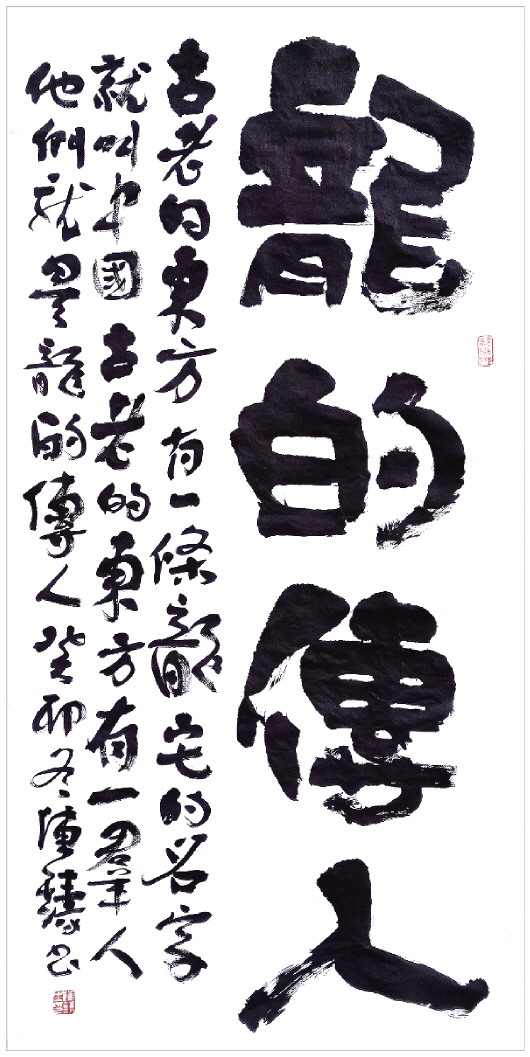 龍的傳人
古老的東方有一條龍它的名字
就叫中國古老的東方有一羣人
他們就是龍的傳人癸卯冬陳書